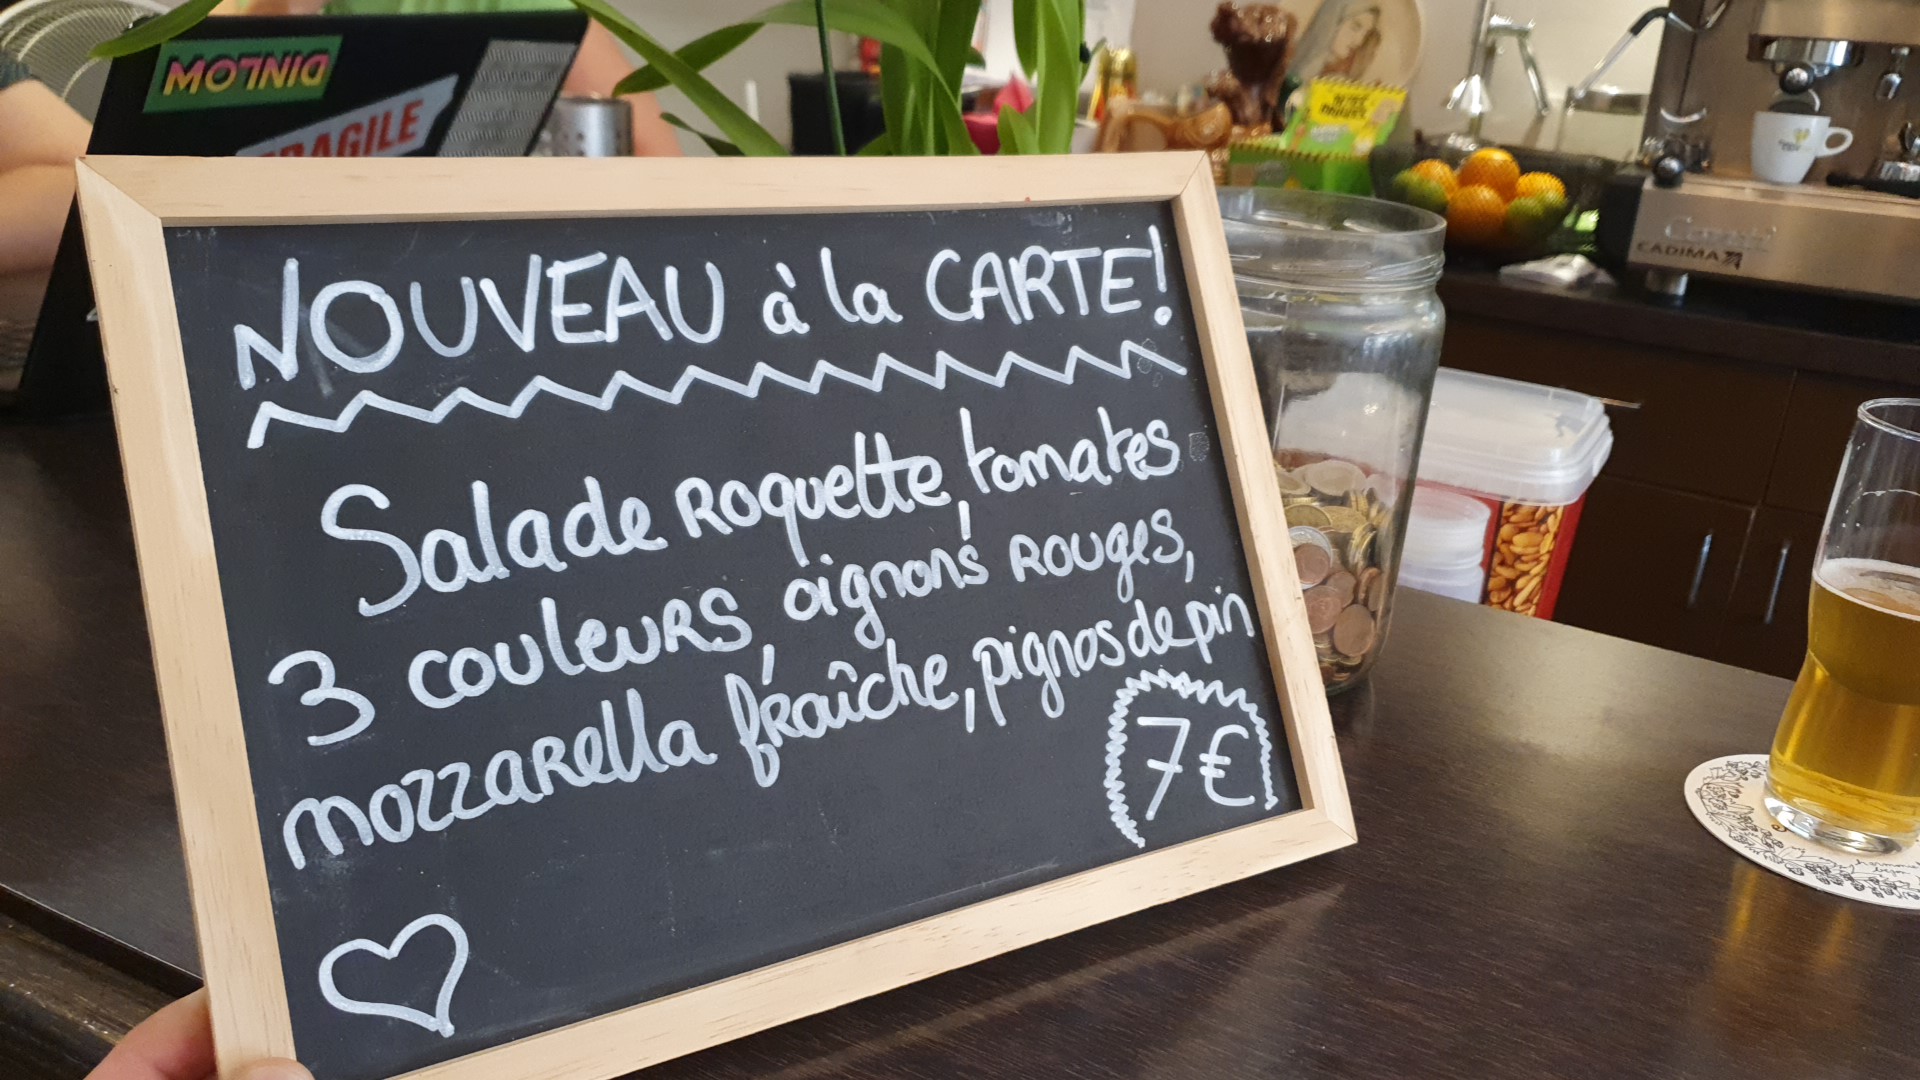 MOLINID
FRAGILE
CADIMA
NOUVEAU à la CARTE!
Salade Roquette, tomates
3 couleurs, oignons rouges,
mozzarella fraîche, pignos de pin
7€